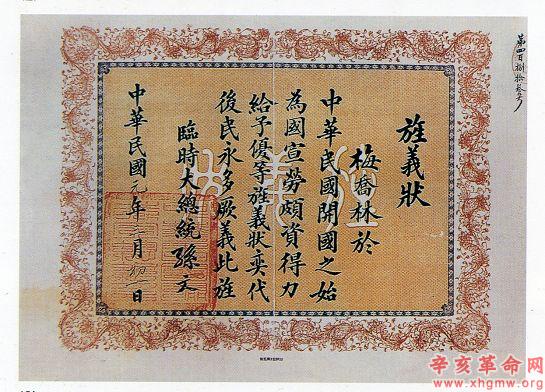 第四百捌拾叁号
旌義狀
梅喬林於
中華民國開國之始
為國宣勞頗資得力
給予優等旌義狀奕代
後民永多厥義此旌
臨時大總統孫文
中華民國元年三月初一日
辛亥革命网
www.xhgmw.org